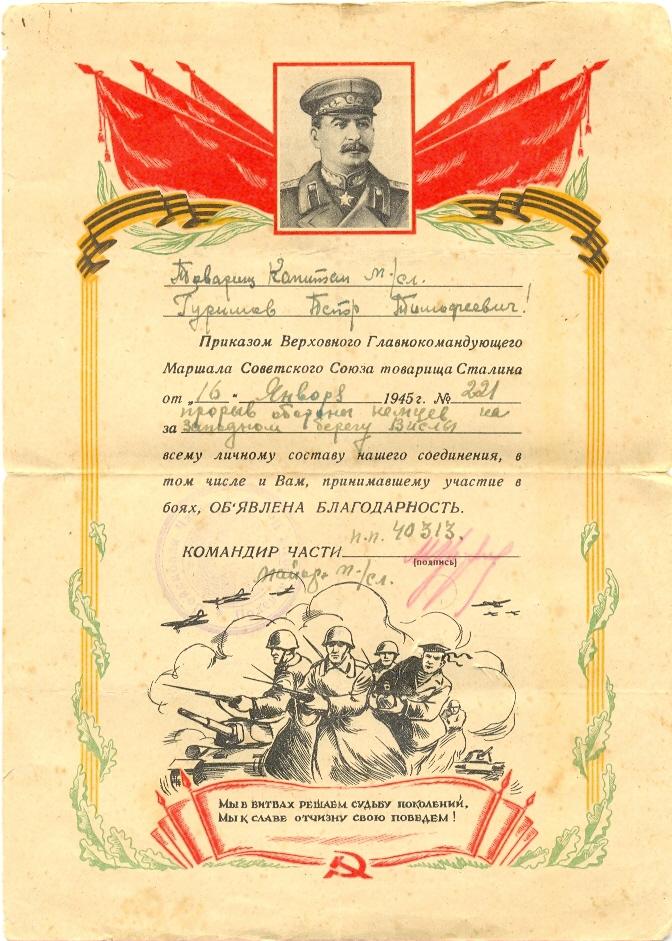 Товарищ Капитан м/сл.
Петр Тимофеевич!
Приказом Верховного Главнокомандующего
Маршала Советского Союза товарища Сталина
от „16“ Января 1945 г. № 221
прорыв обороны немцев на
за западном берегу Вислы
всему личному составу нашего соединения, в
том числе и Вам, принимавшему участие в
боях, ОБ'ЯВЛЕНА БЛАГОДАРНОСТЬ.
п.п. 40313.
КОМАНДИР ЧАСТИ
(подпись)
майор м/сл.
Мы в битвах решаем судьбу поколений,
Мы к славе отчизну свою поведем!